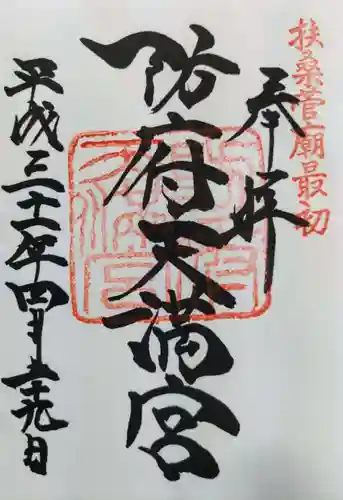 扶桑菅廟最初
奉拝
防府天満宮
平成三十一年四月二十九日